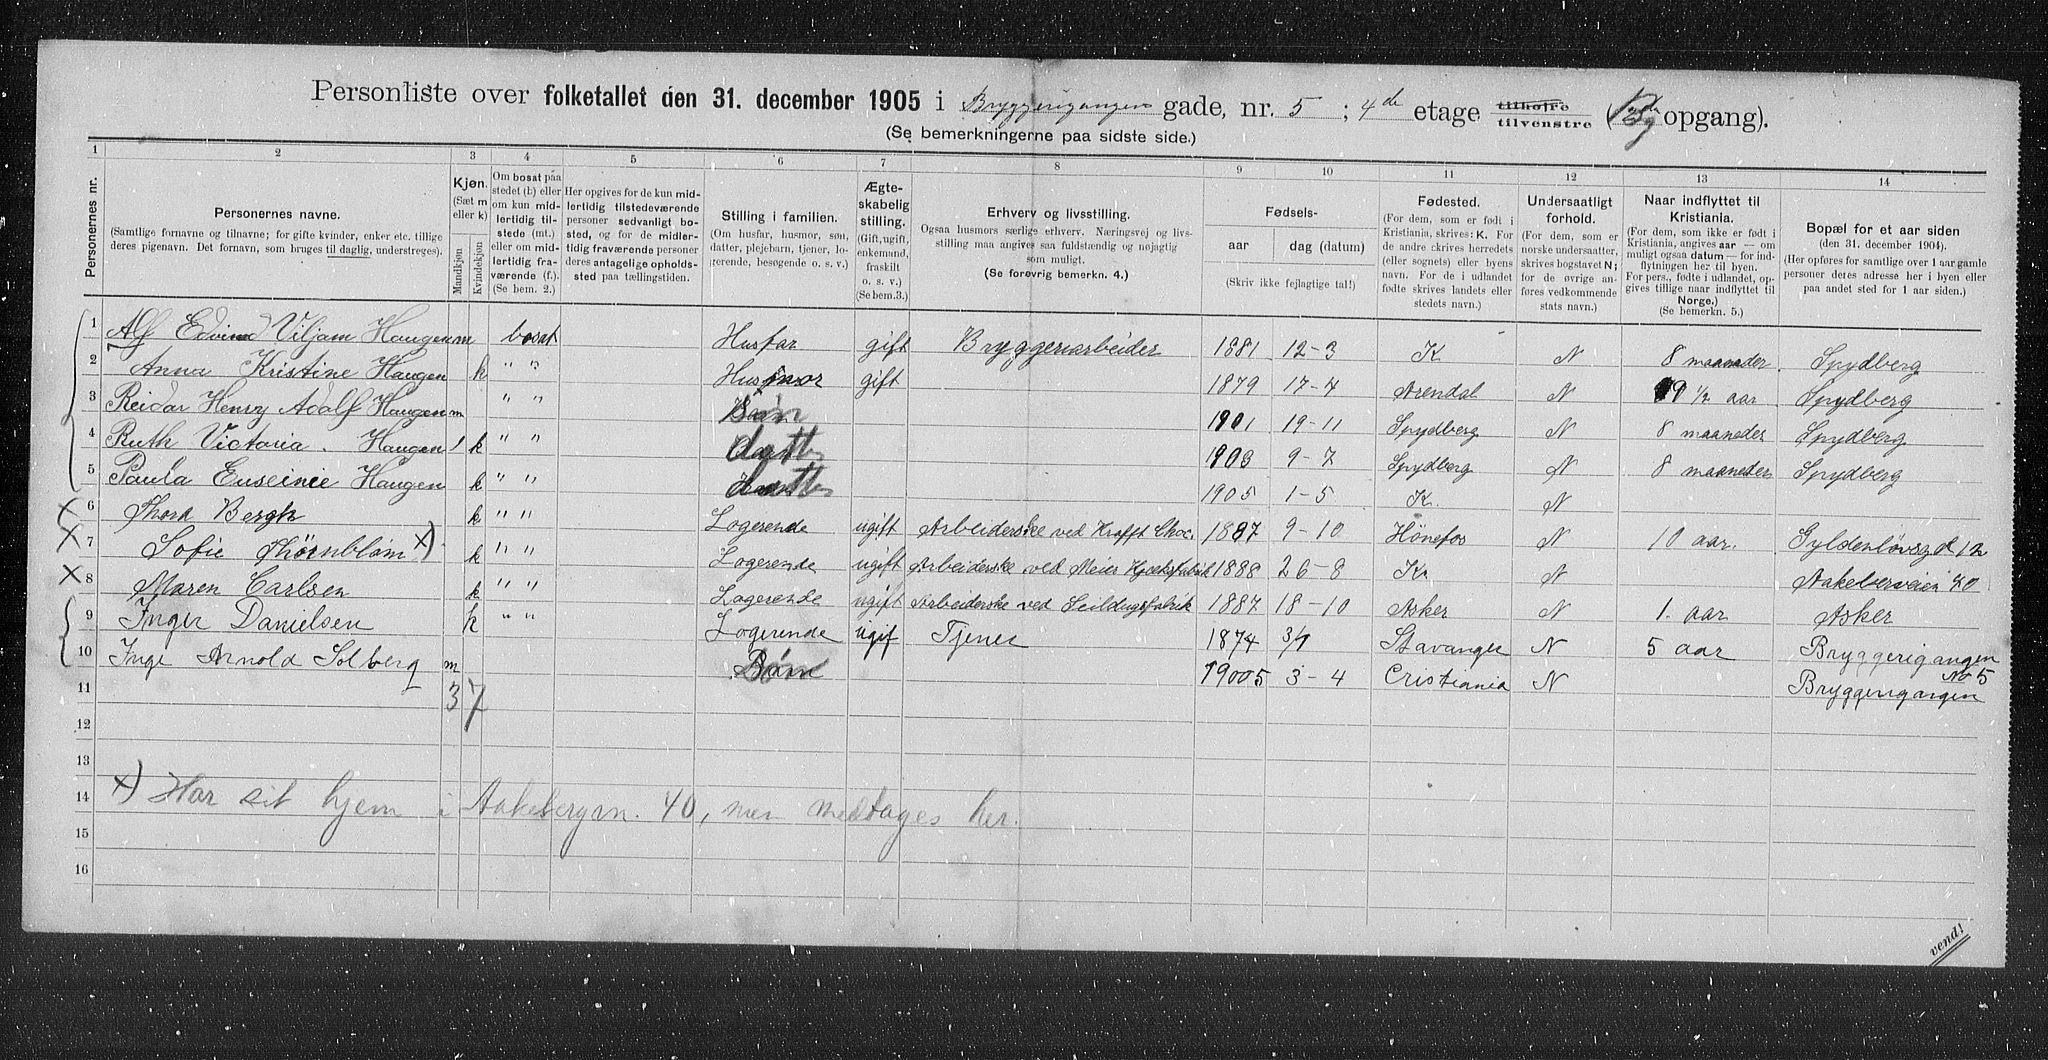 Personliste over folketallet den 31. december 1905 i Bryggerigangen gade, nr. 5 ; 4de etage tilhøjre tilvenstre ( opgang).
(Se bemerkningerne paa sidste side.)
1 2 3 4 5 6 7 8 9 10 11 12 13 14
Personernes nr.
Personernes navne.
(Samtlige fornavne og tilnavne; for gifte kvinder, enker etc. tillige deres pigenavn. Det fornavn, som bruges til daglig, understreges).
Kjøn. (Sæt m eller k)
Mandkjøn Kvindekjøn
Om bosat paa stedet (b) eller om kun midlertidig tilstede (mt.) eller om midlertidig fraværende (f.) (Se bem. 2.)
Her opgives for de kun midlertidig tilstedeværende personer sedvanligt bosted, og for de midlertidig fraværende personer deres antagelige opholdssted paa tællingstiden.
Stilling i familien.
(Om husfar, husmor, søn, datter, plejebarn, tjener, logerende, besøgende o. s. v.)
Ægteskabelig stilling.
(Gift, ugift, enkemand, fraskilt o. s. v.) (Se bem. 3.)
Erhverv og livsstilling.
Ogsaa husmors særlige erhverv. Næringsvej og livsstilling maa angives saa fuldstændig og nøjagtig som muligt.
(Se forøvrig bemerkn. 4.)
Fødsels-
aar dag (datum)
(Skriv ikke fejlagtige tal!)
Fødested.
(For dem, som er født i Kristiania, skrives: K. For de andre skrives herredets (eller sognets) eller byens navn. For de i udlandet fødte skrives landets eller stedets navn.)
Undersaatligt forhold.
(For dem, som er norske undersaatter, skrives bogstavet N; for de øvrige anføres vedkommende stats navn.)
Naar indflyttet til Kristiania.
(For dem, som ikke er født i Kristiania, angives aar — om muligt ogsaa datum — for indflytningen her til byen. For pers., fødte i udlandet, opgives tillige naar indflyttet til Norge.)
(Se bemerkn. 5.)
Bopæl for et aar siden
(den 31. december 1904).
(Her opføres for samtlige over 1 aar gamle personer deres adresse her i byen eller paa andet sted for 1 aar siden.)
1 Alf Edvind Viljam Haugen m bosat Husfar gift Bryggeriarbeider 1881 12-3 K N 8 maaneder. Spydberg
2 Anna Kristine Haugen k " " Husmor gift 1879 17-7 Arendal N 9 1/2 aar Spydberg
3 Reidar Henry Adolf Haugen m " " Søn 1901 19-11 Spydberg N 8 maaneder Spydberg
4 Ruth Victoria. Haugen k " " datter 1903 9-7 Spydberg N 8 maaneder Spydberg
5 Paula Euseinie Haugen k " " datter 1905 1-5 K. N
X 6 Thora Bergh k " " Logerende ugift Arbeiderske ved Krafft Choc. 1887 9-10 Hønefos N 10 aar. Gyldenløvsgd 12
X 7 Sofie Thørnblom X) k " " Logerende ugift Arbeiderske ved Meier Kjæksfabrik 1888 26-8 Kr N Aakeberveien 40
X 8 Maren Carlsen k " " Logerende ugift Arbeiderske ved Seildugsfabrik 1887 18-10 Asker N 1. aar Asker
9 Inger Danielsen k " " Logerende ugif Tjener 1874 3/7 Stavanger N 5 aar Bryggerigangen No 5
10 Inge Arnold Solberg m Søn 19005 3-4 Cristiania N Bryggerigangen
11 3 7
12
13
14 X) Har sit hjem i Aakebergvn. 40, men medtages her.
15
16
vend!